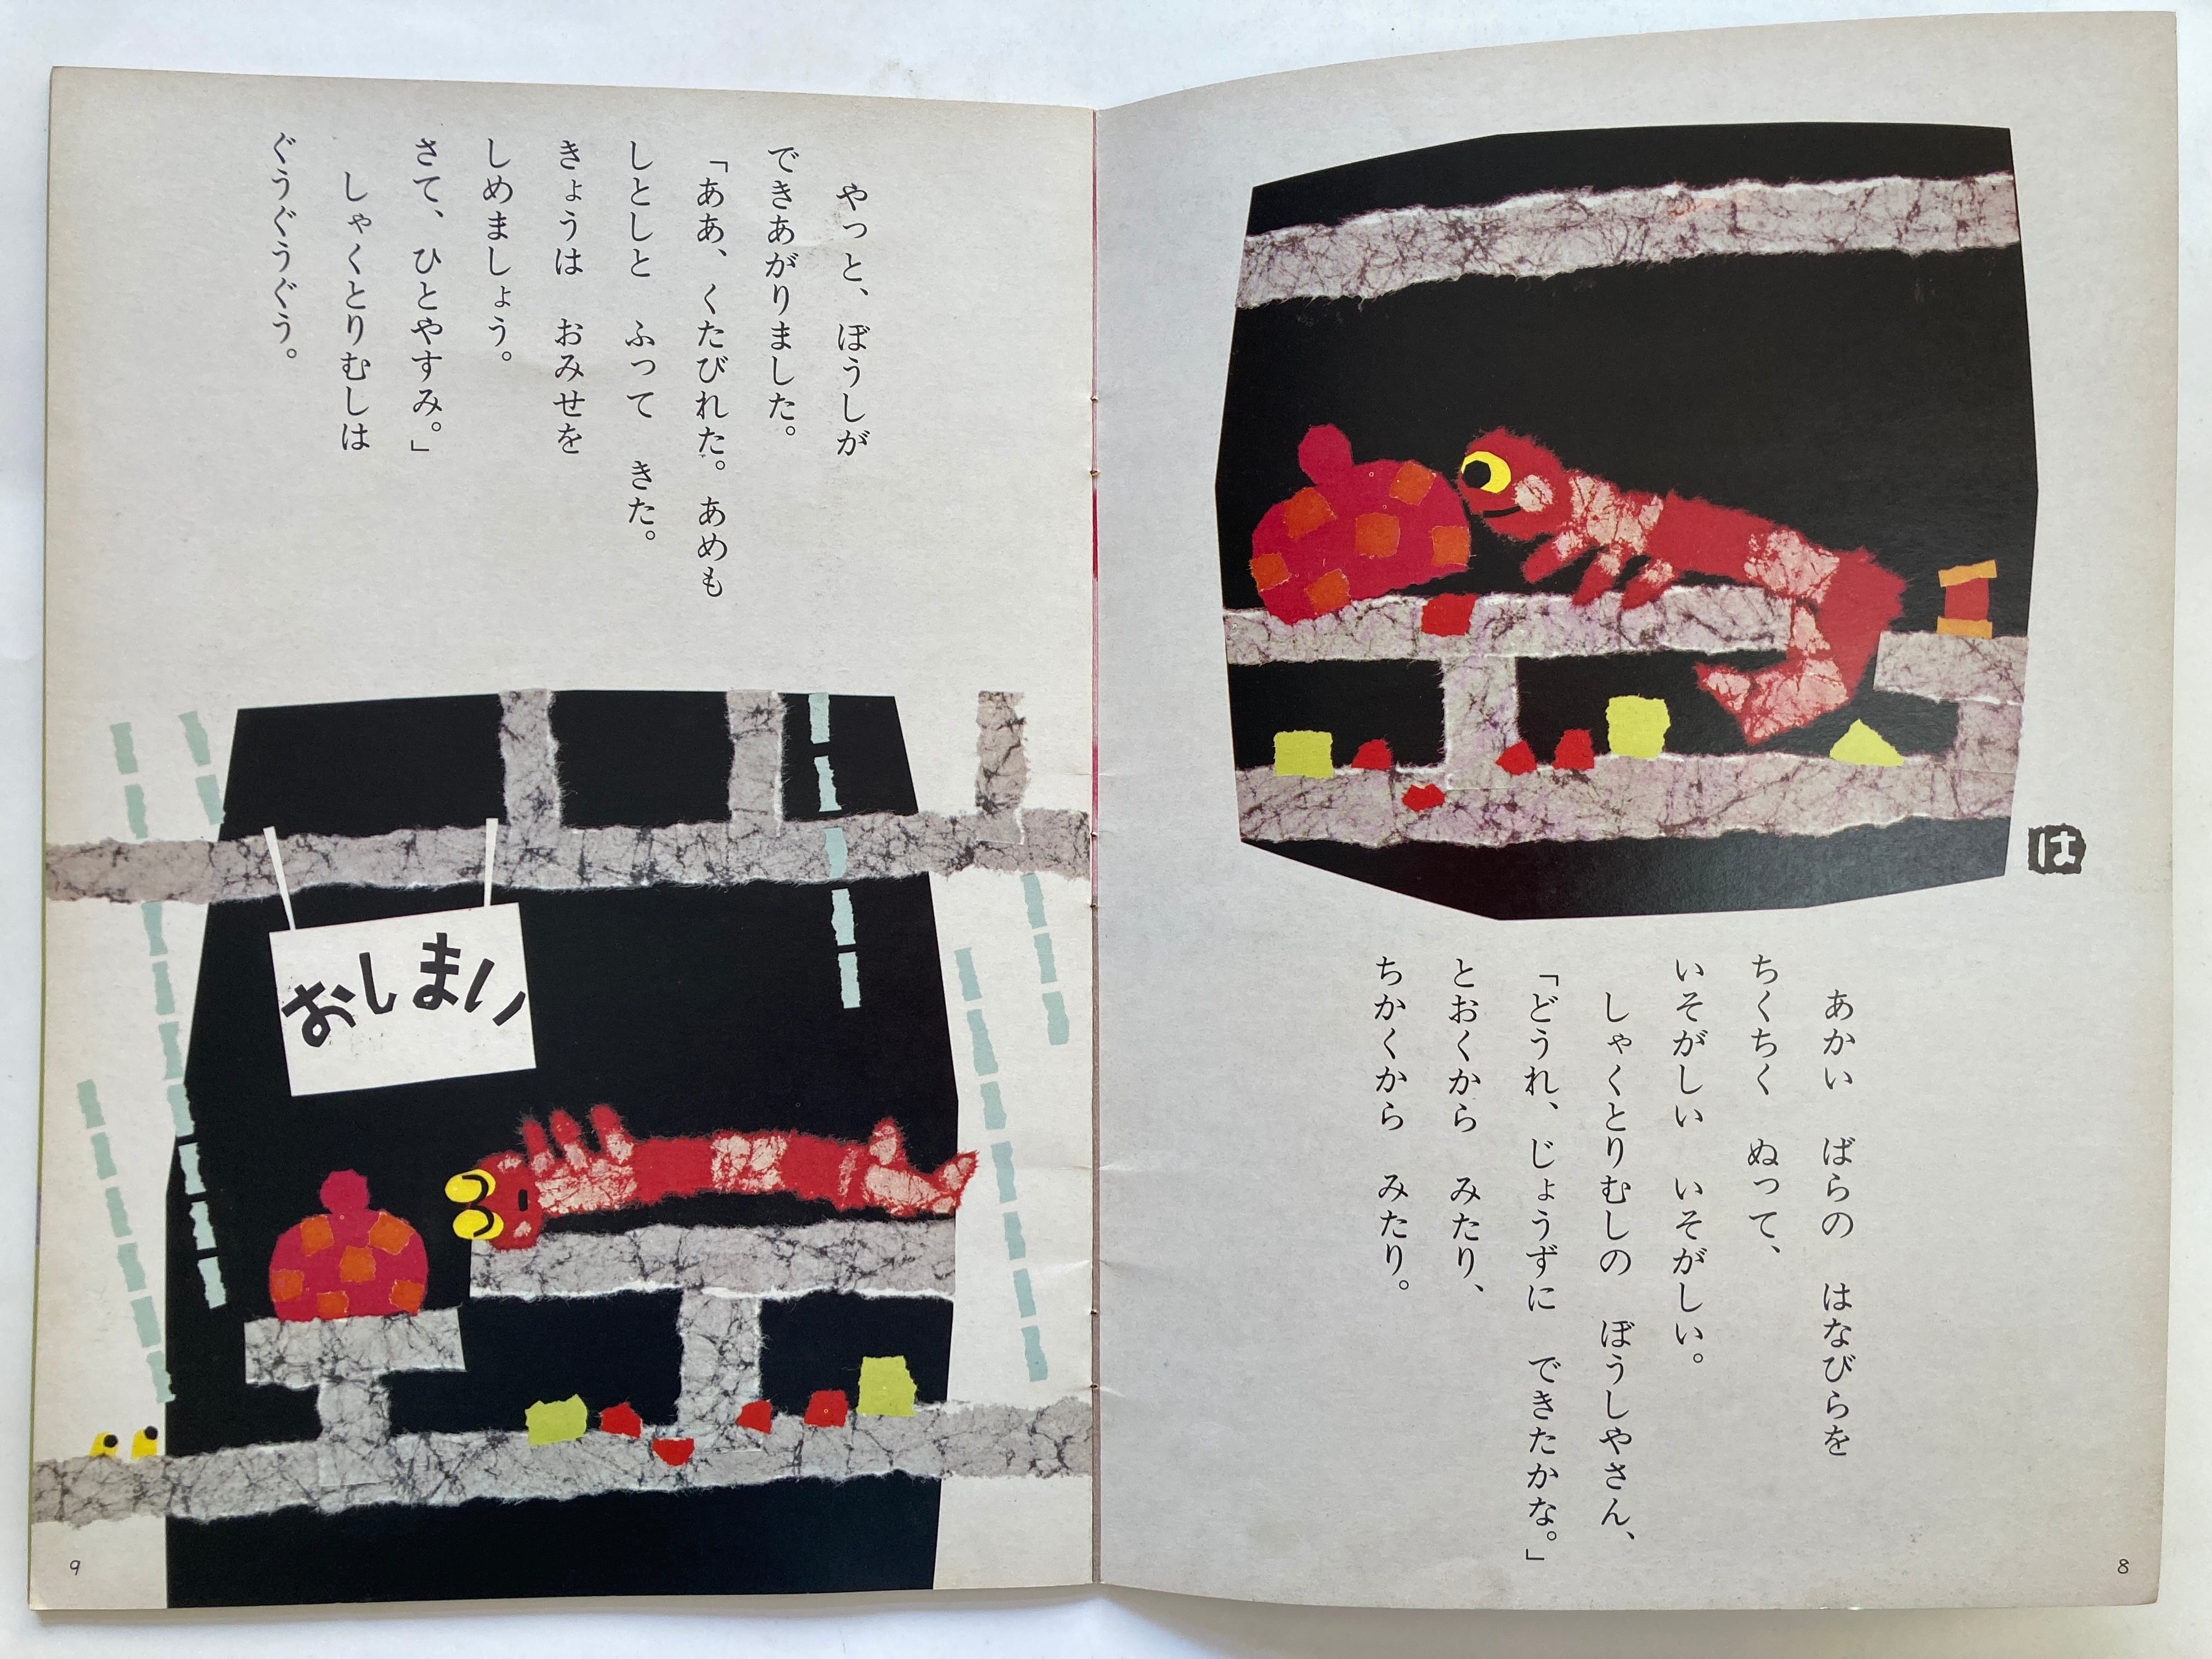 は
あかい ばらの はなびらを
ちくちく ぬって、
いそがしい いそがしい。
しゃくとりむしの ぼうしやさん、
「どうれ、じょうずに できたかな。」
とおくから みたり、
ちかくから みたり。
8
やっと、ぼうしが
できあがりました。
「ああ、くたびれた。あめも
しとしと ふって きた。
きょうは おみせを
しめましょう。
さて、ひとやすみ。」
しゃくとりむしは
ぐうぐうぐう。
おしまい
9